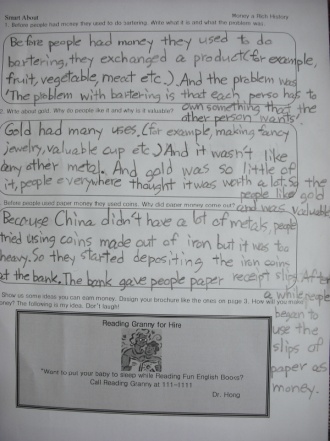 Smart About
Money a Rich History
1. Before people had money they used to do bartering. Write what it is and what the problem was.
Before people had money they used to do
bartering, they exchanged a product(for example,
fruit, vegetable, meat etc.) And the problem was
'The problem with bartering is that each perso has to
own something that the
other person wants.'
2. Write about gold. Why do people like it and why is it valuable?
Gold had many uses. (for example, making fancy
jewelry, valuable cup etc.) And it wasn't like
any other metal. And gold was so little of
it, people everywhere thought it was worth a lot. So the
people like gold
and was valuable
Before people used paper money they used coins. Why did paper money come out?
Because China didn't have a lot of metals, people
tried using coins made out of iron but it was too
heavy. So they started depositing the iron coin
at the bank. The bank gave people paper receipt slips. After
a while people
began to
use the
slips of
paper as
money.
Show us some ideas you can earn money. Design your brochure like the ones on page 3. How will you make
money? The following is my idea. Don't laugh!
Reading Granny for Hire
"Want to put your baby to sleep while Reading Fun English Books?
Call Reading Granny at 111-1111
Dr. Hong